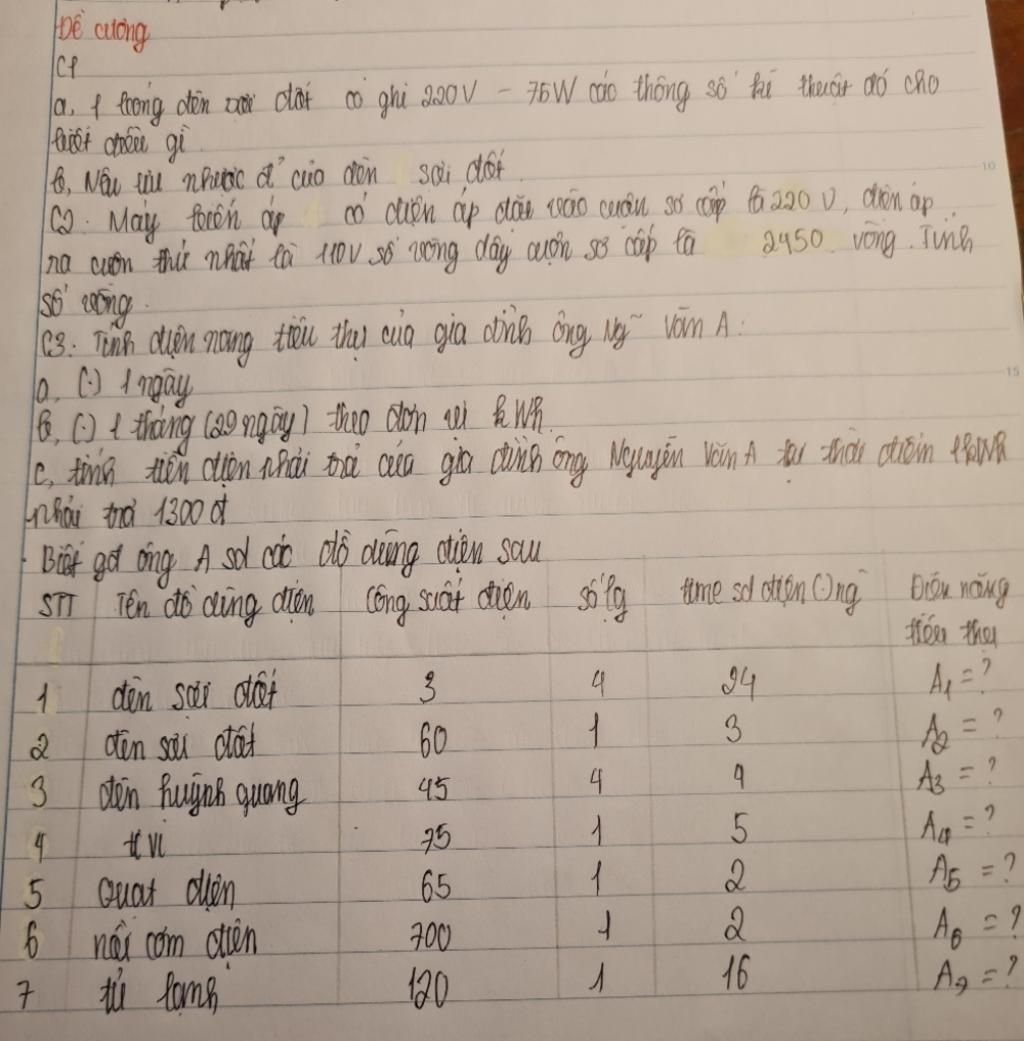 Đề cương
C1
a, 1 bóng đèn sợi đốt có ghi 220V - 75W các thông số kĩ thuật đó cho
biết điều gì
b, Nêu ưu nhược đ' của đèn sợi đốt
C2: Máy biến áp có điện áp đầu vào cuộn sơ cấp là 220 V, điện áp
ra cuộn thứ nhất là 110V số vòng dây cuộn sơ cấp là 2450 vòng. Tính
số vòng.
C3: Tính điện năng tiêu thụ của gia đình ông Ng~ Văn A:
a, (.) 1 ngày
b, (.) 1 tháng (29 ngày) theo đơn vị kWh.
c, tính tiền điện phải trả của gia đình ông Nguyễn Văn A tại thời điểm 1kWh
phải trả 1300 đ
. Biết gđ ông A sd các đồ dùng điện sau
STT Tên đồ dùng điện Công suất điện số lg time sd điện (.) ng~ Điện năng
tiêu thụ
1 đèn sợi đốt 3 4 24 A1 = ?
2 đèn sợi đốt 60 1 3 A2 = ?
3 đèn huỳnh quang 45 4 4 A3 = ?
4 ti vi 75 1 5 A4 = ?
5 quạt điện 65 1 2 A5 = ?
6 nồi cơm điện 700 1 2 A6 = ?
7 tủ lạnh 120 1 16 A7 = ?